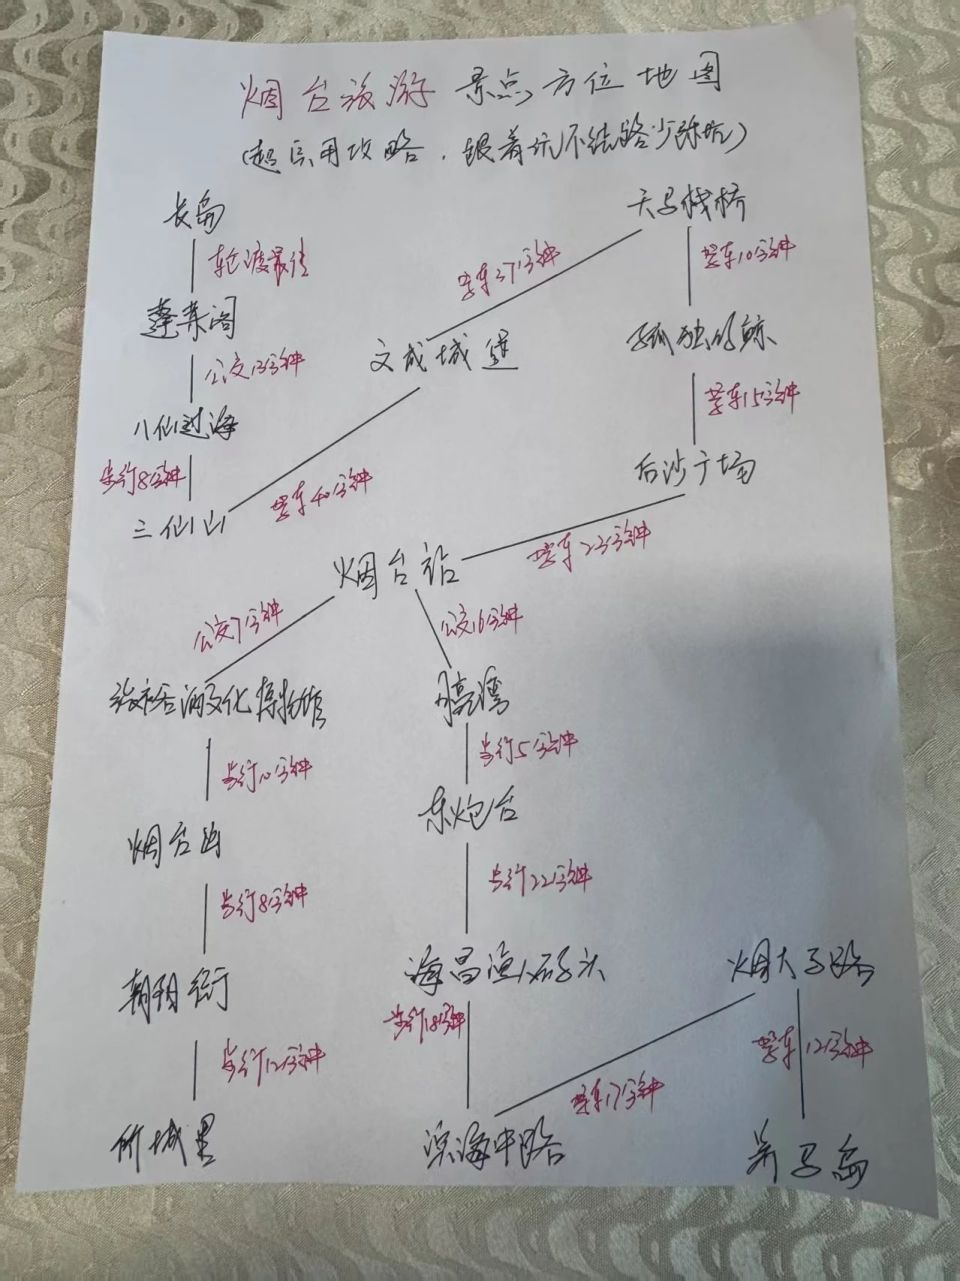 烟台旅游景点方位地图
(超实用攻略,跟着玩不绕路少踩坑)
长岛
天马栈桥
轮渡最佳
驾车37分钟
驾车10分钟
蓬莱阁
文成城堡
孤独的鲸
公交13分钟
驾车15分钟
八仙过海
步行8分钟
驾车40分钟
后沙广场
三仙山
烟台站
驾车23分钟
公交7分钟
公交16分钟
张裕酒文化博物馆
月亮湾
步行10分钟
步行5分钟
烟台山
东炮台
步行8分钟
步行22分钟
朝阳街
海昌渔人码头
烟大马路
步行18分钟
步行12分钟
驾车17分钟
驾车12分钟
所城里
滨海中路
养马岛